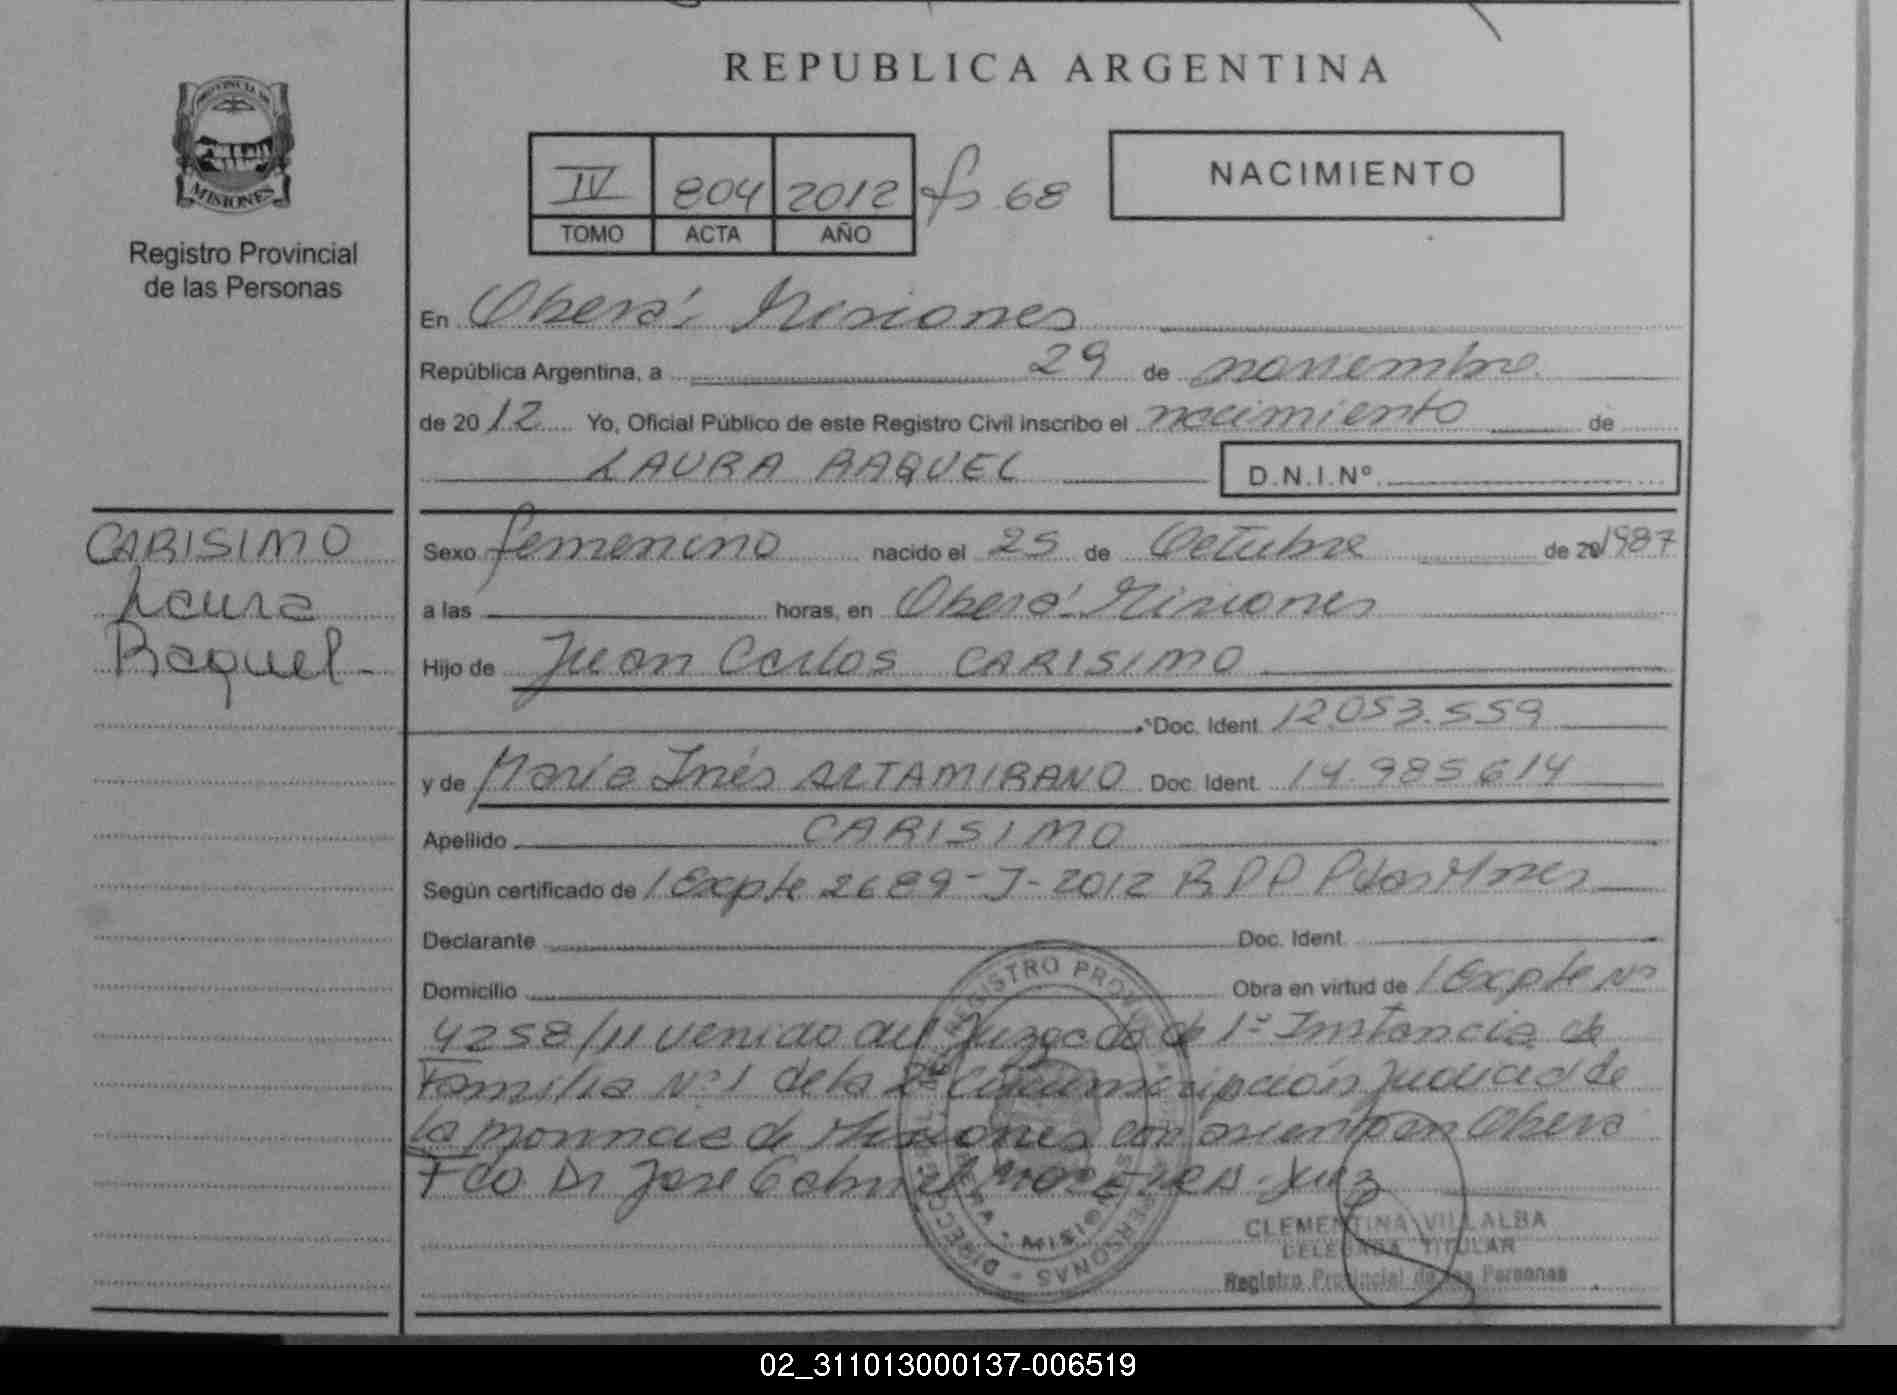 REPUBLICA ARGENTINA
PROVINCIA DE
MISIONES
Registro Provincial
de las Personas
IV 804 2012 fs. 68
TOMO ACTA AÑO
NACIMIENTO
En Oberá, Misiones
República Argentina, a 29 de noviembre
de 2012 Yo, Oficial Público de este Registro Civil inscribo el nacimiento de
LAURA RAQUEL D.N.I.Nº
CARISIMO
Laura
Raquel-
Sexo femenino nacido el 25 de Octubre de 20 1987
a las horas, en Oberá Misiones
Hijo de Juan Carlos CARISIMO
Doc. Ident. 12.053.559
y de María Inés ALTAMIRANO Doc. Ident. 14.985.614
Apellido CARISIMO
Según certificado de / Expte 2689-J-2012 RPP Pdas Mnes
Declarante Doc. Ident.
Domicilio Obra en virtud de / Expte Nº
4258/11 venido del Juzgado de 1º Instancia de
Familia Nº 1 de la 2º Circunscripción Judicial de
la provincia de Misiones con asiento en Oberá
Fdo Dr José Gabriel Juez
CLEMENTINA VILLALBA
DELEGADA TITULAR
Registro Provincial de las Personas
02_311013000137-006519